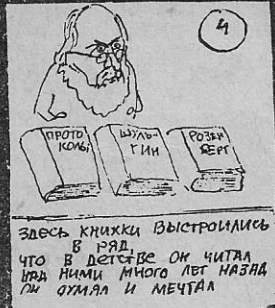 4
ПРОТО
КОЛЫ
ШУЛЬ-
ГИН
РОЗЕН
БЕРГ
ЗДЕСЬ КНИЖКИ ВЫСТРОИЛИСЬ
В РЯД,
ЧТО В ДЕТСТВЕ ОН ЧИТАЛ
НАД НИМИ МНОГО ЛЕТ НАЗАД
ОН ДУМАЛ И МЕЧТАЛ